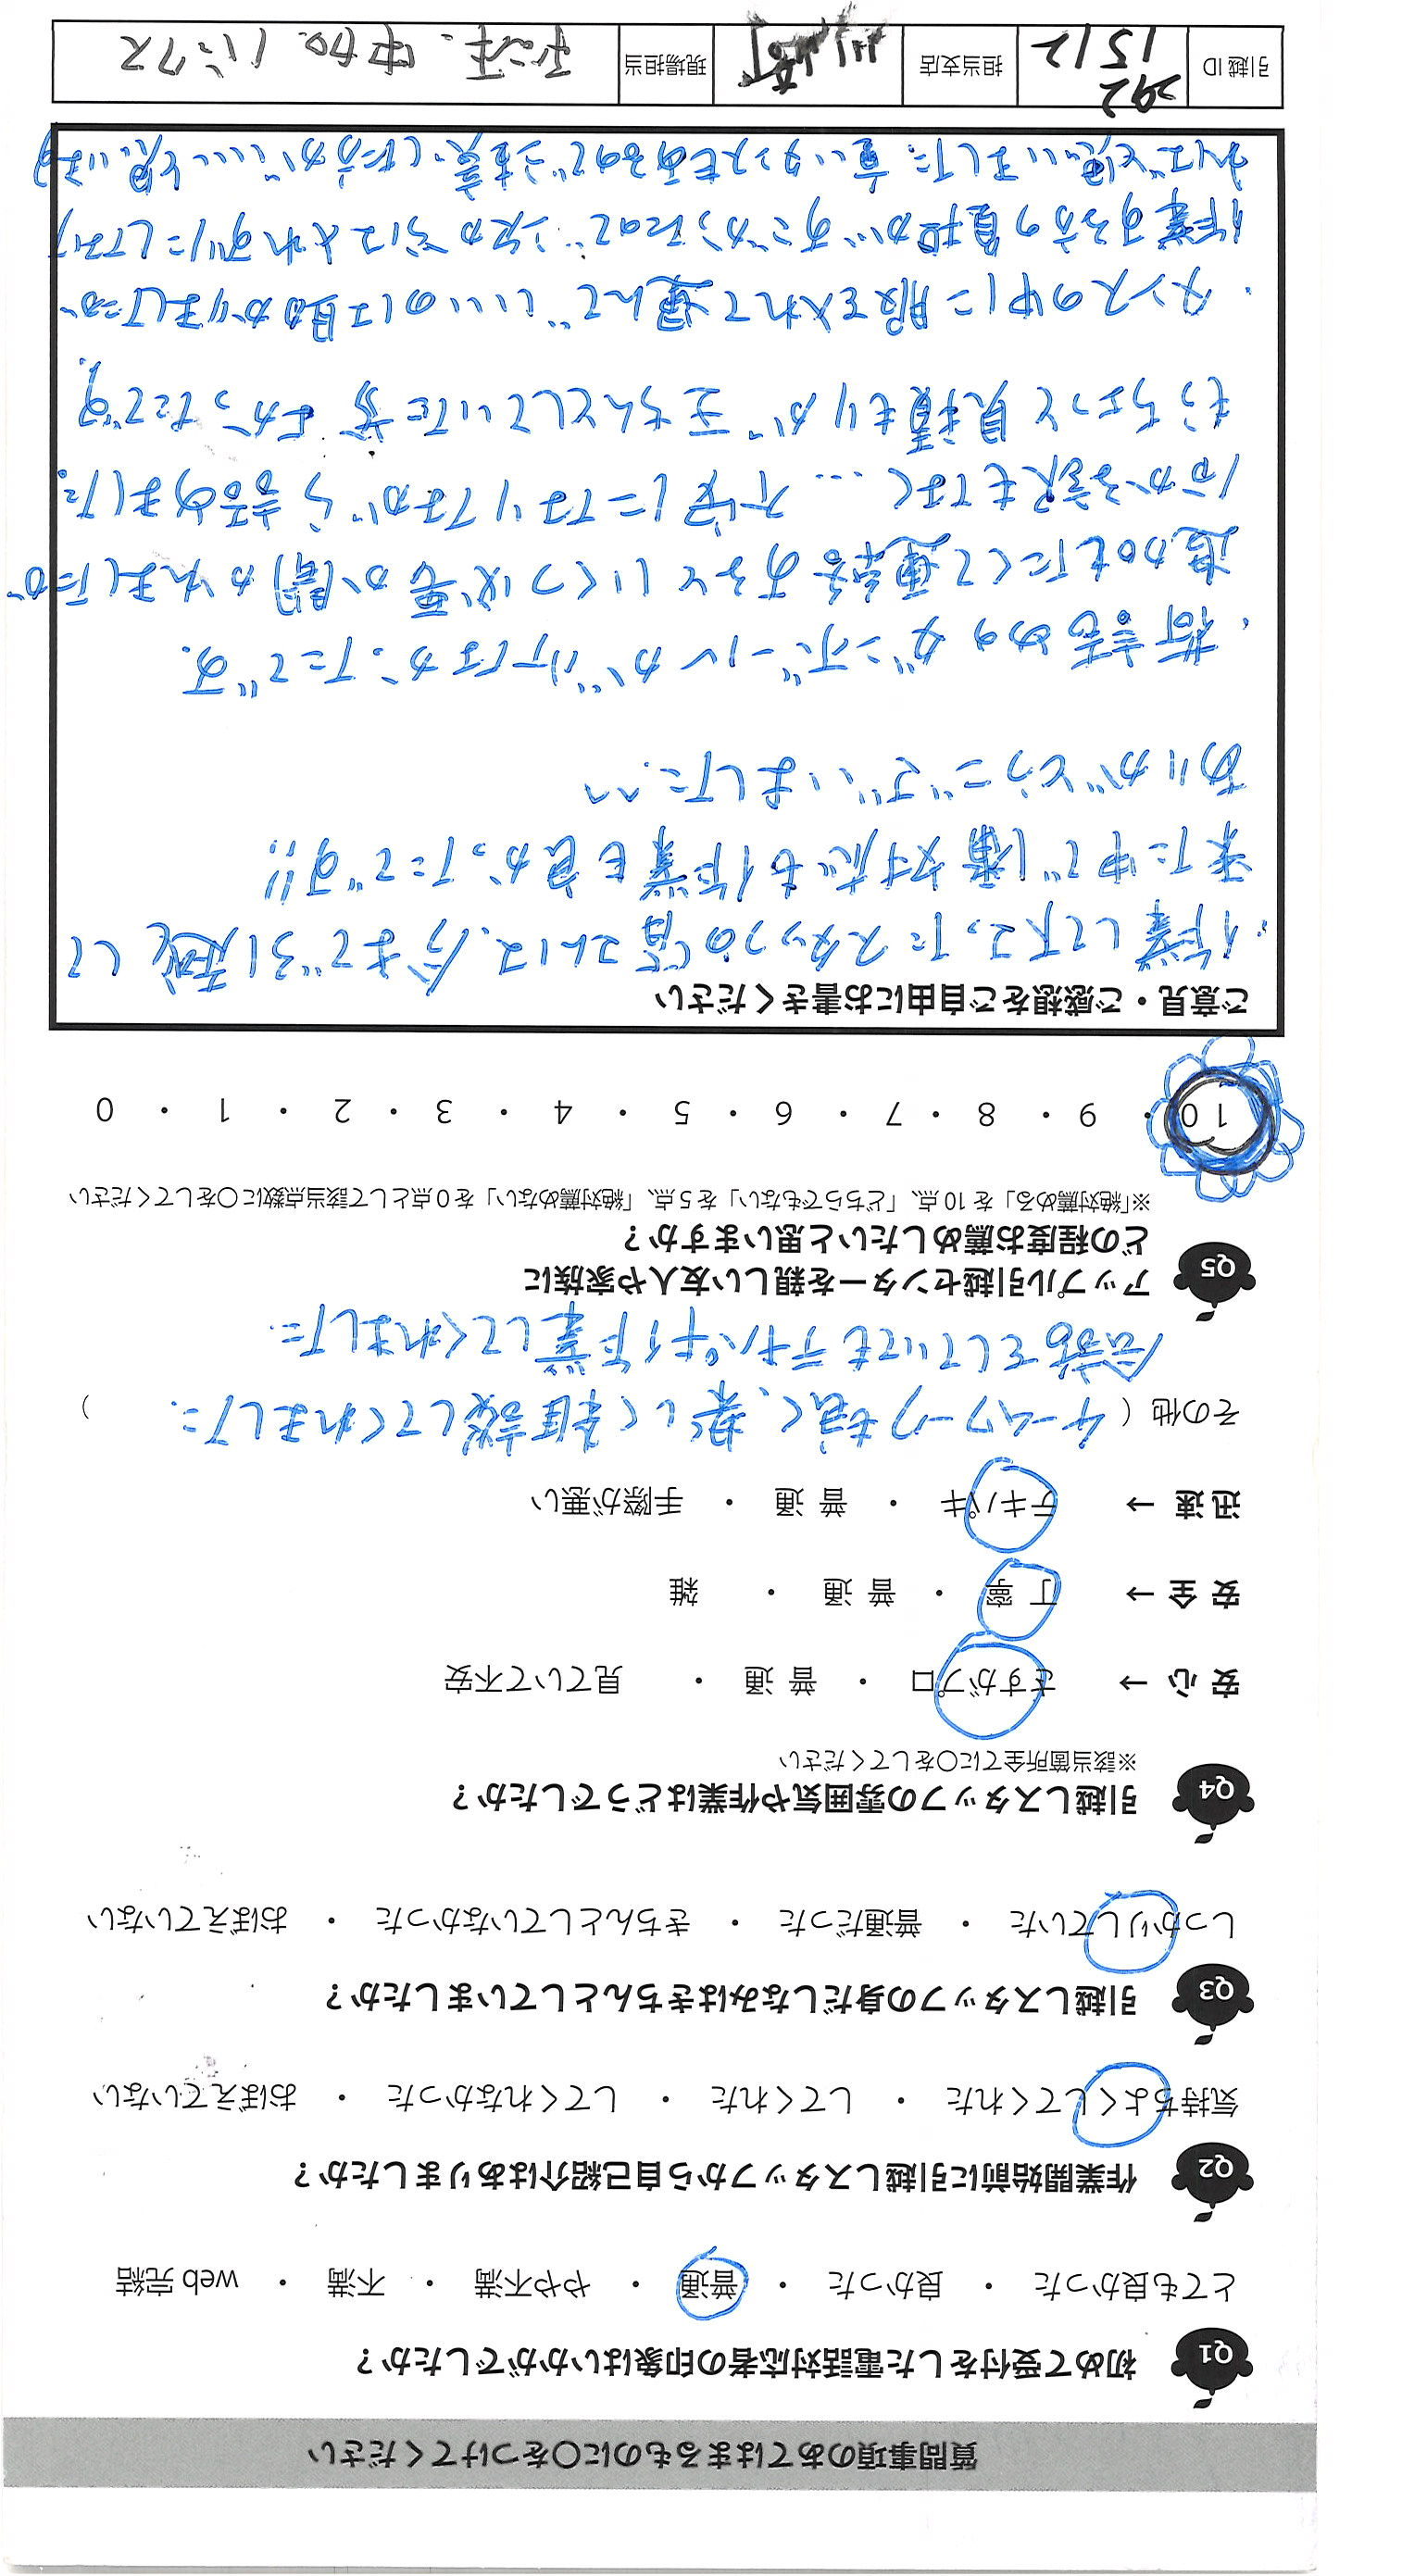 質問事項のあてはまるものに〇をつけてください
Q1 初めて受付をした電話対応者の印象はいかがでしたか？
とても良かった ・ 良かった ・ 普通 ・ やや不満 ・ 不満 ・ web 完結
Q2 作業開始前に引越しスタッフから自己紹介はありましたか？
気持ちよくしてくれた ・ してくれた ・ してくれなかった ・ おぼえていない
Q3 引越しスタッフの身だしなみはきちんとしていましたか？
しっかりしていた ・ 普通だった ・ きちんとしていなかった ・ おぼえていない
Q4 引越しスタッフの雰囲気や作業はどうでしたか？
※該当箇所全てに〇をしてください
安 心 → さすがプロ ・ 普 通 ・ 見ていて不安
安 全 → 丁 寧 ・ 普 通 ・ 雑
迅 速 → テキパキ ・ 普 通 ・ 手際が悪い
その他（チームワークも良く、楽しく雑談してくれました.）
会話をしていてもテキパキ作業してくれました.
Q5 アップル引越センターを親しい友人や家族に
どの程度お薦めしたいと思いますか？
※「絶対薦める」を 10 点、「どちらでもない」を 5 点、「絶対薦めない」を 0 点として該当点数に〇をしてください
10 ・ 9 ・ 8 ・ 7 ・ 6 ・ 5 ・ 4 ・ 3 ・ 2 ・ 1 ・ 0
ご意見・ご感想をご自由にお書きください
・作業して下さったスタッフの皆さんは、今まで引越して
来た中で1番対応も作業も良かったです!!
ありがとうございました.^^
・荷詰めのダンボールが 足りなかったです.
追加したくて連絡すると いくつ必要か聞かれましたが
分かる訳もなく… 不安になりながら詰めました.
もうちょっと見積もりが きちんとしていた等 よかったです。
・タンスの中に服を入れて運んで いいのは助かりましたが
作業する方の負担が すごかったので 次からは入れずにしてたり
れば と思いました. 重いタンスもあるので 注意したほうが いいと思います
引越 ID 292 1512 担当支店 川崎 現場担当 中加. バニクス